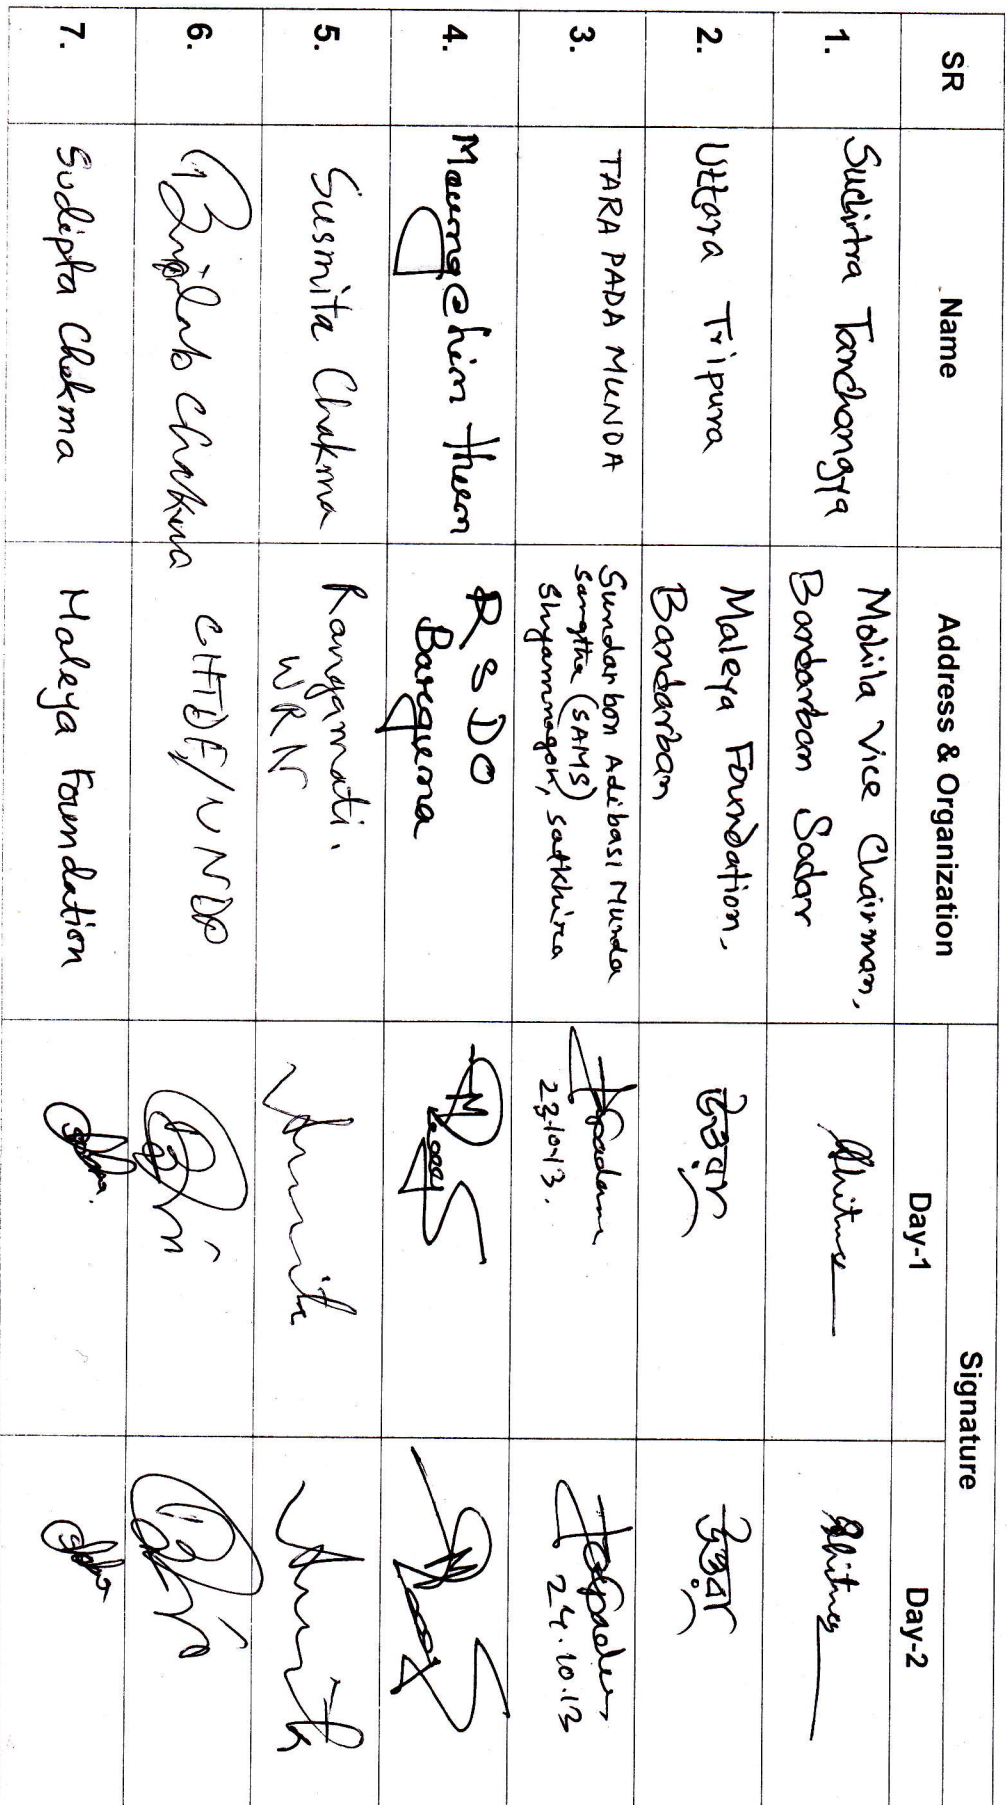 SR Name Address & Organization Signature
Day-1 Day-2
1. Suchitra Tanchangya Mohila Vice Chairman,
Bandarban Sadar
2. Uttara Tripura Maleya Foundation,
Bandarban
3. TARA PADA MUNDA Sundarbon Adibasi Munda
Sangtha (SAMS)
Shyamnagor, Satkhira
23.10.13.
24.10.13
4. RSDO
Barguna
5. Susmita Chakma Rangamati.
WRN
6. Chakma CHTDF/UNDP
7. Sudipta Chakma Maleya Foundation